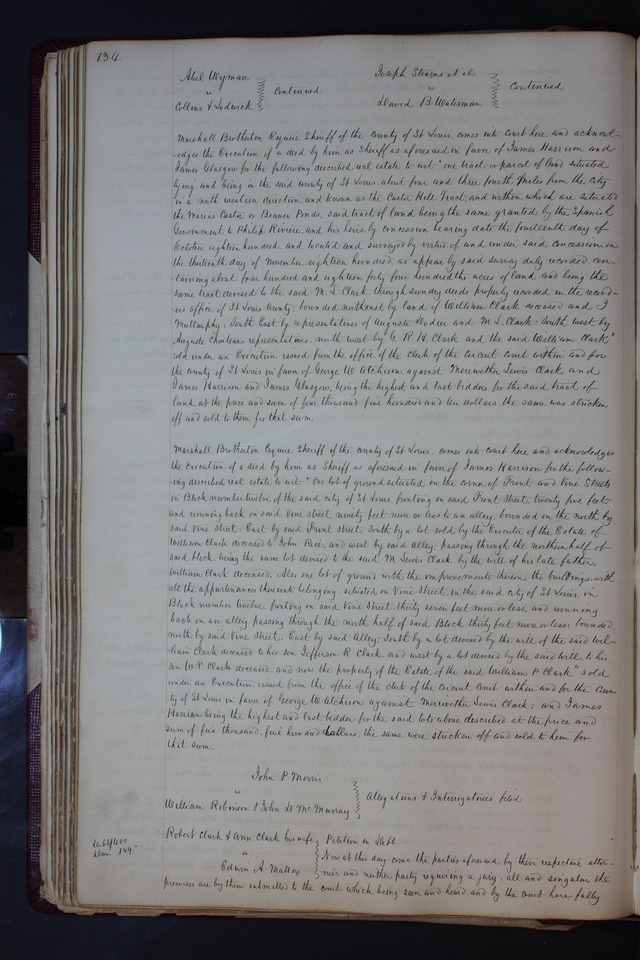 134
Abel Wyman
vs } Continued
Collins & Ludwick
Joseph Stearns et al
vs } Continued
David B Waterman
Marshall Brotherton Esquire Sheriff of the county of St Louis, comes into court here and acknowl-
edges the Execution of a deed by him as Sheriff as aforesaid in favor of James Harrison and
James Glasgow for the following described real estate to wit "one tract or parcel of land situated
lying and being in the said county of St Louis about four and three fourth miles from the city
in a north western direction and known as the Castor Hill Tract, and within which are situated
the Marias Castor or Beaver Ponds, said tract of land being the same granted by the Spanish
Government to Philip Riviere, and his heirs, by concession bearing date the fourteenth day of
October eighteen hundred, and located and surveyed by virtue of and under said concession, on
the thirteenth day of November eighteen hundred, as appear by said survey duly recorded con-
taining about four hundred and eighteen forty four hundredths acres of land, and being the
same tract devised to the said M. L. Clark, through sundry deeds properly recorded in the record-
ers office of St Louis County; bounded northeast by land of William Clark deceased and J
Mullanphy, South East by representatives of Auguste Dodier and M L Clark. South west by
Auguste Chouteaus representatives, north west by G R H Clark and the said William Clark"
sold under an Execution issued from the office of the clerk of the circuit court within and for
the county of St Louis in favor of George W Atchison against Merewether Lewis Clark, and
James Harrison and James Glasgow, being the highest and last bidders for the said tract of
land at the price and sum of four thousand five hundred and ten dollars, the same was stricken
off and sold to them for that sum.
Marshall Brotherton Esquire Sheriff of the county of St Louis, comes into court here and acknowledges
the execution of a deed by him as Sheriff as aforesaid in favor of James Harrison for the follow-
ing described real estate to wit "one lot of ground situated on the corner of Front and Vine Streets
in Block number twelve of the said city of St Louis, fronting on said Front Street, twenty five feet
and running back on said Vine street ninety feet more or less to an alley, bounded on the north by
said Vine street, East by said Front street, South by a lot sold by the Executor of the Estate of
William Clark deceased to John Rice, and west by said alley, passing through the northern half of
said block, being the same lot devised to the said M Lewis Clark by the will of his late father,
William Clark deceased. Also one lot of ground with the improvements thereon, the buildings, with
all the appurtenances thereunto belonging, situated on Vine Street, in the said city of St Louis, on
Block number twelve, fronting on said Vine Street, thirty seven feet more or less, and running
back on an alley passing through the north half of said Block thirty feet more or less; bounded
north by said Vine street. East by said Alley; South by a lot devised by the will of the said Wil-
liam Clark deceased to her son Jefferson K Clark, and west by a lot devised by the said will to his
son W P Clark deceased, and now the property of the Estate of the said William P Clark." sold
under an Execution issued from the office of the clerk of the circuit court within and for the Coun-
ty of St Louis in favor of George W Atchison against Meriwether Lewis Clark; and James
Harrison being the highest and last bidder for the said lots above described at the price and
sum of five thousand, five hundred dollars, the same were stricken off and sold to him for
that sum.
John P Morris
vs } Allegations & Interrogatories filed
William Robinson & John D McMurray
Debt $400
Dam 149.
Robert Clark & Ann Clark his wife } Petition in Debt
vs
Edwin A Mattox
Now at this day come the parties aforesaid by their respective attor-
nies and neither party requiring a jury, all and singular the
premises are by them submitted to the court which being seen and heard, and by the court here fully